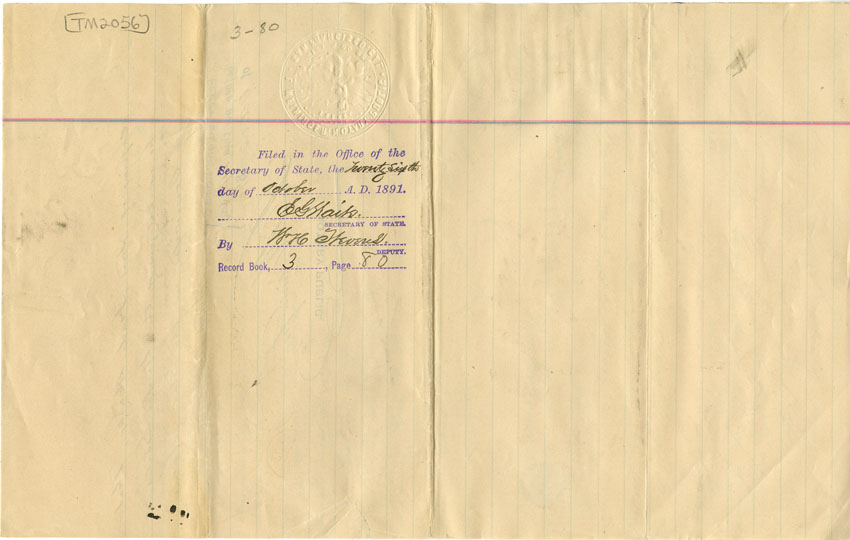 [TM2056]
3-80
Filed in the Office of the
Secretary of State, the twenty sixth
day of October A. D. 1891.
E G Waite.
SECRETARY OF STATE.
By W H
DEPUTY.
Record Book, 3, Page 80